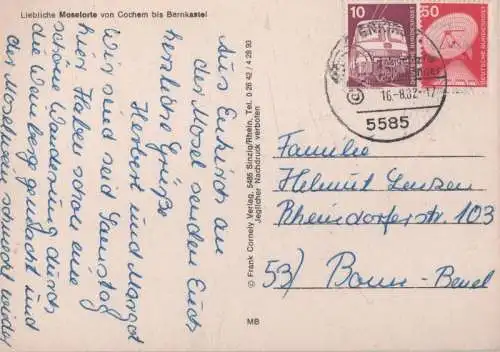 Liebliche Moselorte von Cochem bis Bernkastel
Aus Enkirch an
der Mosel senden Euch
herzliche Grüße
Herbert und Margot
Wir sind seit Samstag
hier. Haben schon eine
schöne Wanderung durch
die Weinberge gemacht und
der Moselwein schmeckt wieder
© Frank Cornely Verlag, 5485 Sinzig/Rhein, Tel. 0 26 42 / 4 28 93
Jeglicher Nachdruck verboten
MB
10
DEUTSCHE BUNDESPOST
50
DEUTSCHE BUNDESPOST
16.-8.82-17
5585
Familie
Helmut Lenzen
Rheindorferstr. 103
53) Bonn-Beuel